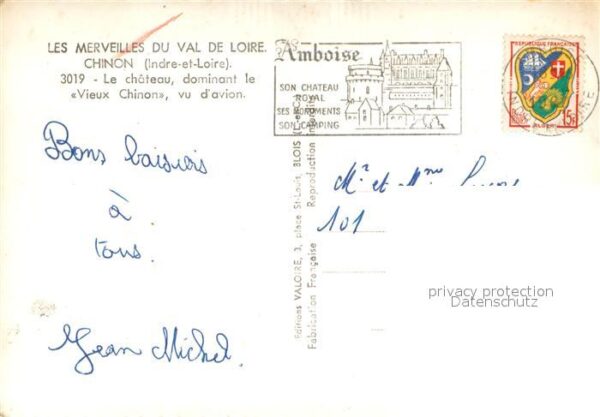 LES MERVEILLES DU VAL DE LOIRE.
CHINON (Indre-et-Loire).
3019 - Le château, dominant le
«Vieux Chinon», vu d'avion.
Amboise
SON CHATEAU
ROYAL
SES MONUMENTS
SON CAMPING
REPUBLIQUE FRANÇAISE
ALGER
15F
Bons baisers
à
tous.
Jean Michel.
Mr et Mme
101
Editions VALOIRE, 3, place St-Louis, BLOIS
Fabrication Française Reproduction Interdite
privacy protection
Datenschutz